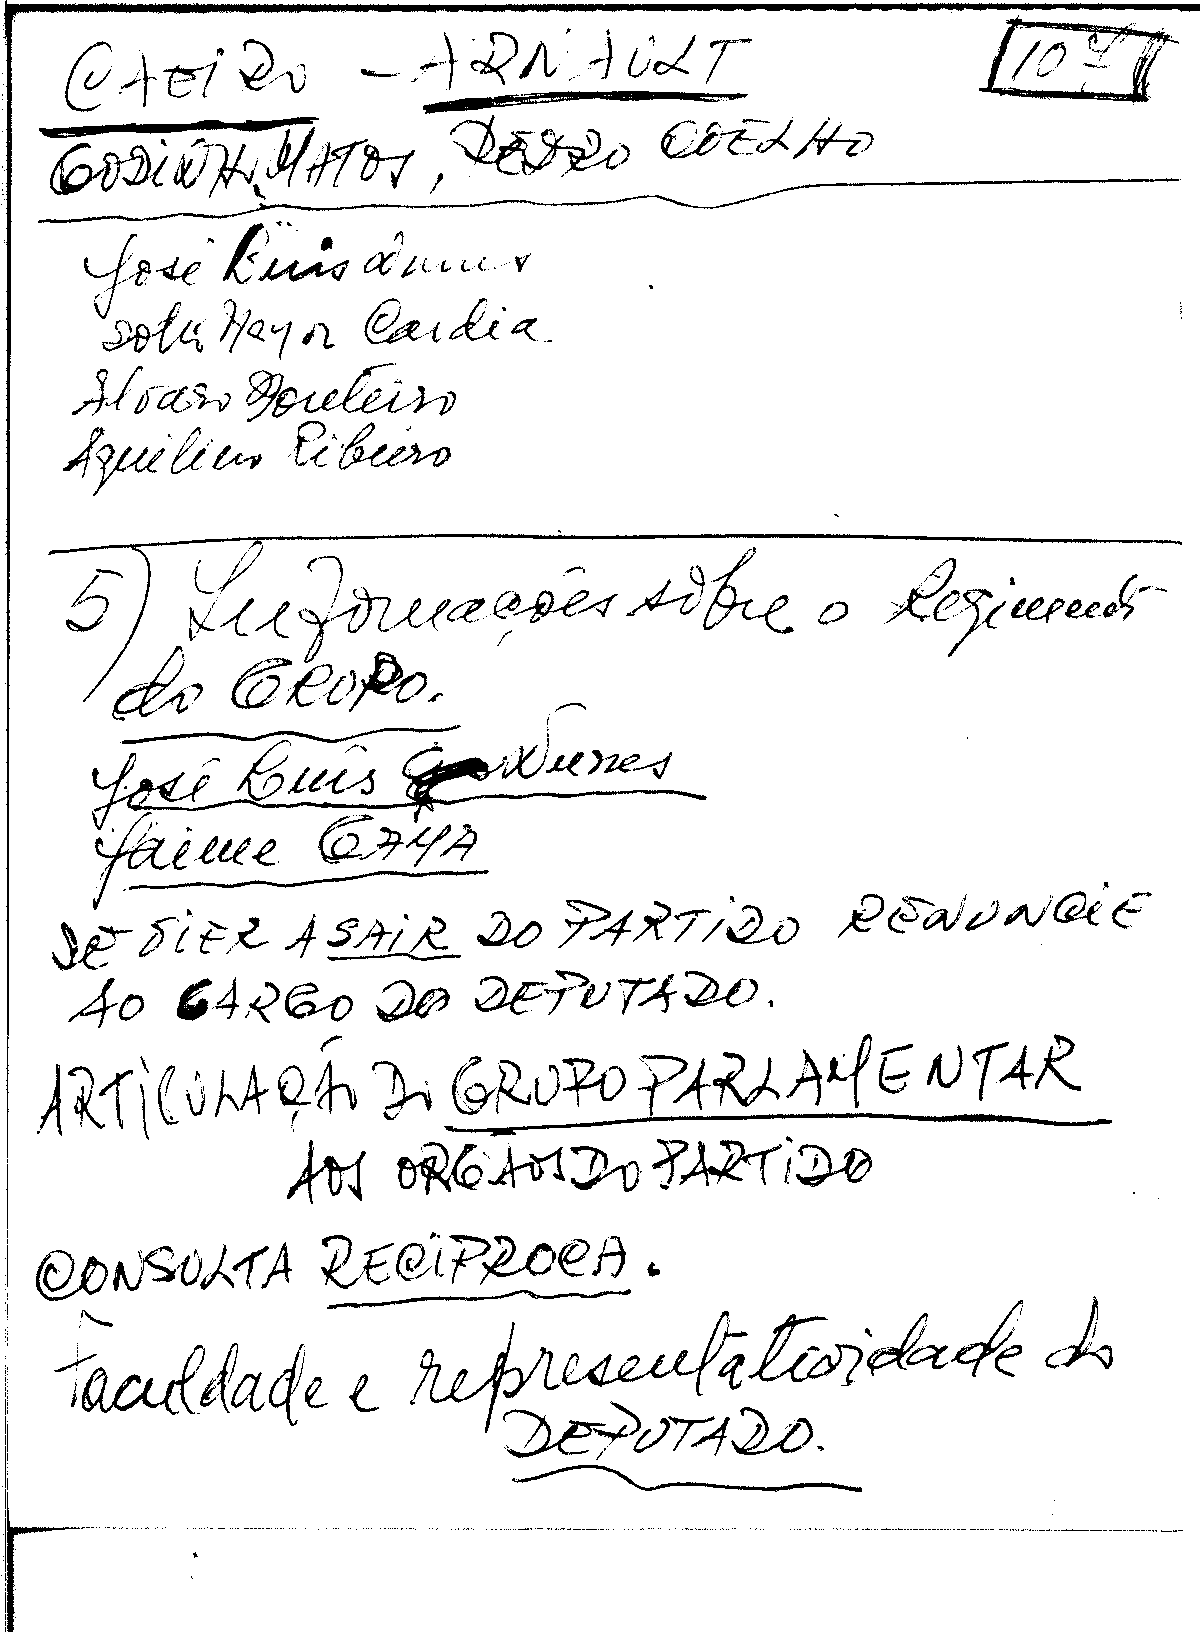 CAEIRO - ARNAULT
GODINHO, MATOS, PEDRO COELHO
José Luis Nunes
Sotto Mayor Cardia
Alvaro Monteiro
Aquilino Ribeiro
5) Informações sobre o Regimento
do GRUPO.
José Luis Nunes
Jaime GAMA
SE VIER A SAIR DO PARTIDO RENUNCIE
AO CARGO DO DEPUTADO.
ARTICULAÇÃO DO GRUPO PARLAMENTAR
AOS ORGÃOS DO PARTIDO
CONSULTA RECIPROCA.
Faculdade e representatividade do
DEPUTADO.